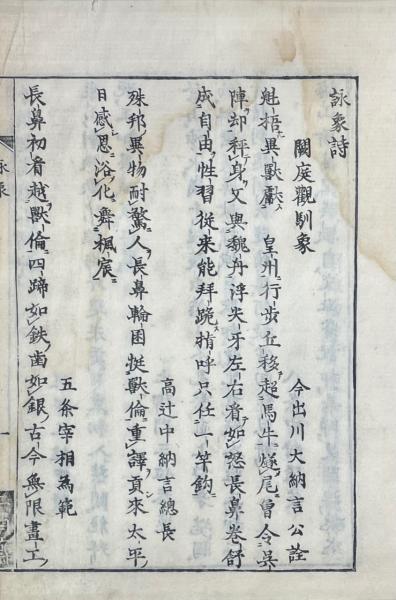 詠象詩
闕庭觀馴象 今出川大納言公詮
魁梧異獸獻 皇州行步丘移超馬牛燧尾曾令吳
陣却秤身又與魏舟浮尖牙左右看如怒長鼻卷舒
成自由性習從來能拜跪指呼只任一竿鈎
高辻中納言總長
殊邦異物耐驚人長鼻輪囷挺獸倫重譯貢來太平
日感恩浴化舞楓宸
五条宰相為範
長鼻初看越獸倫四蹄如鉄歯如銀古今無限畫工